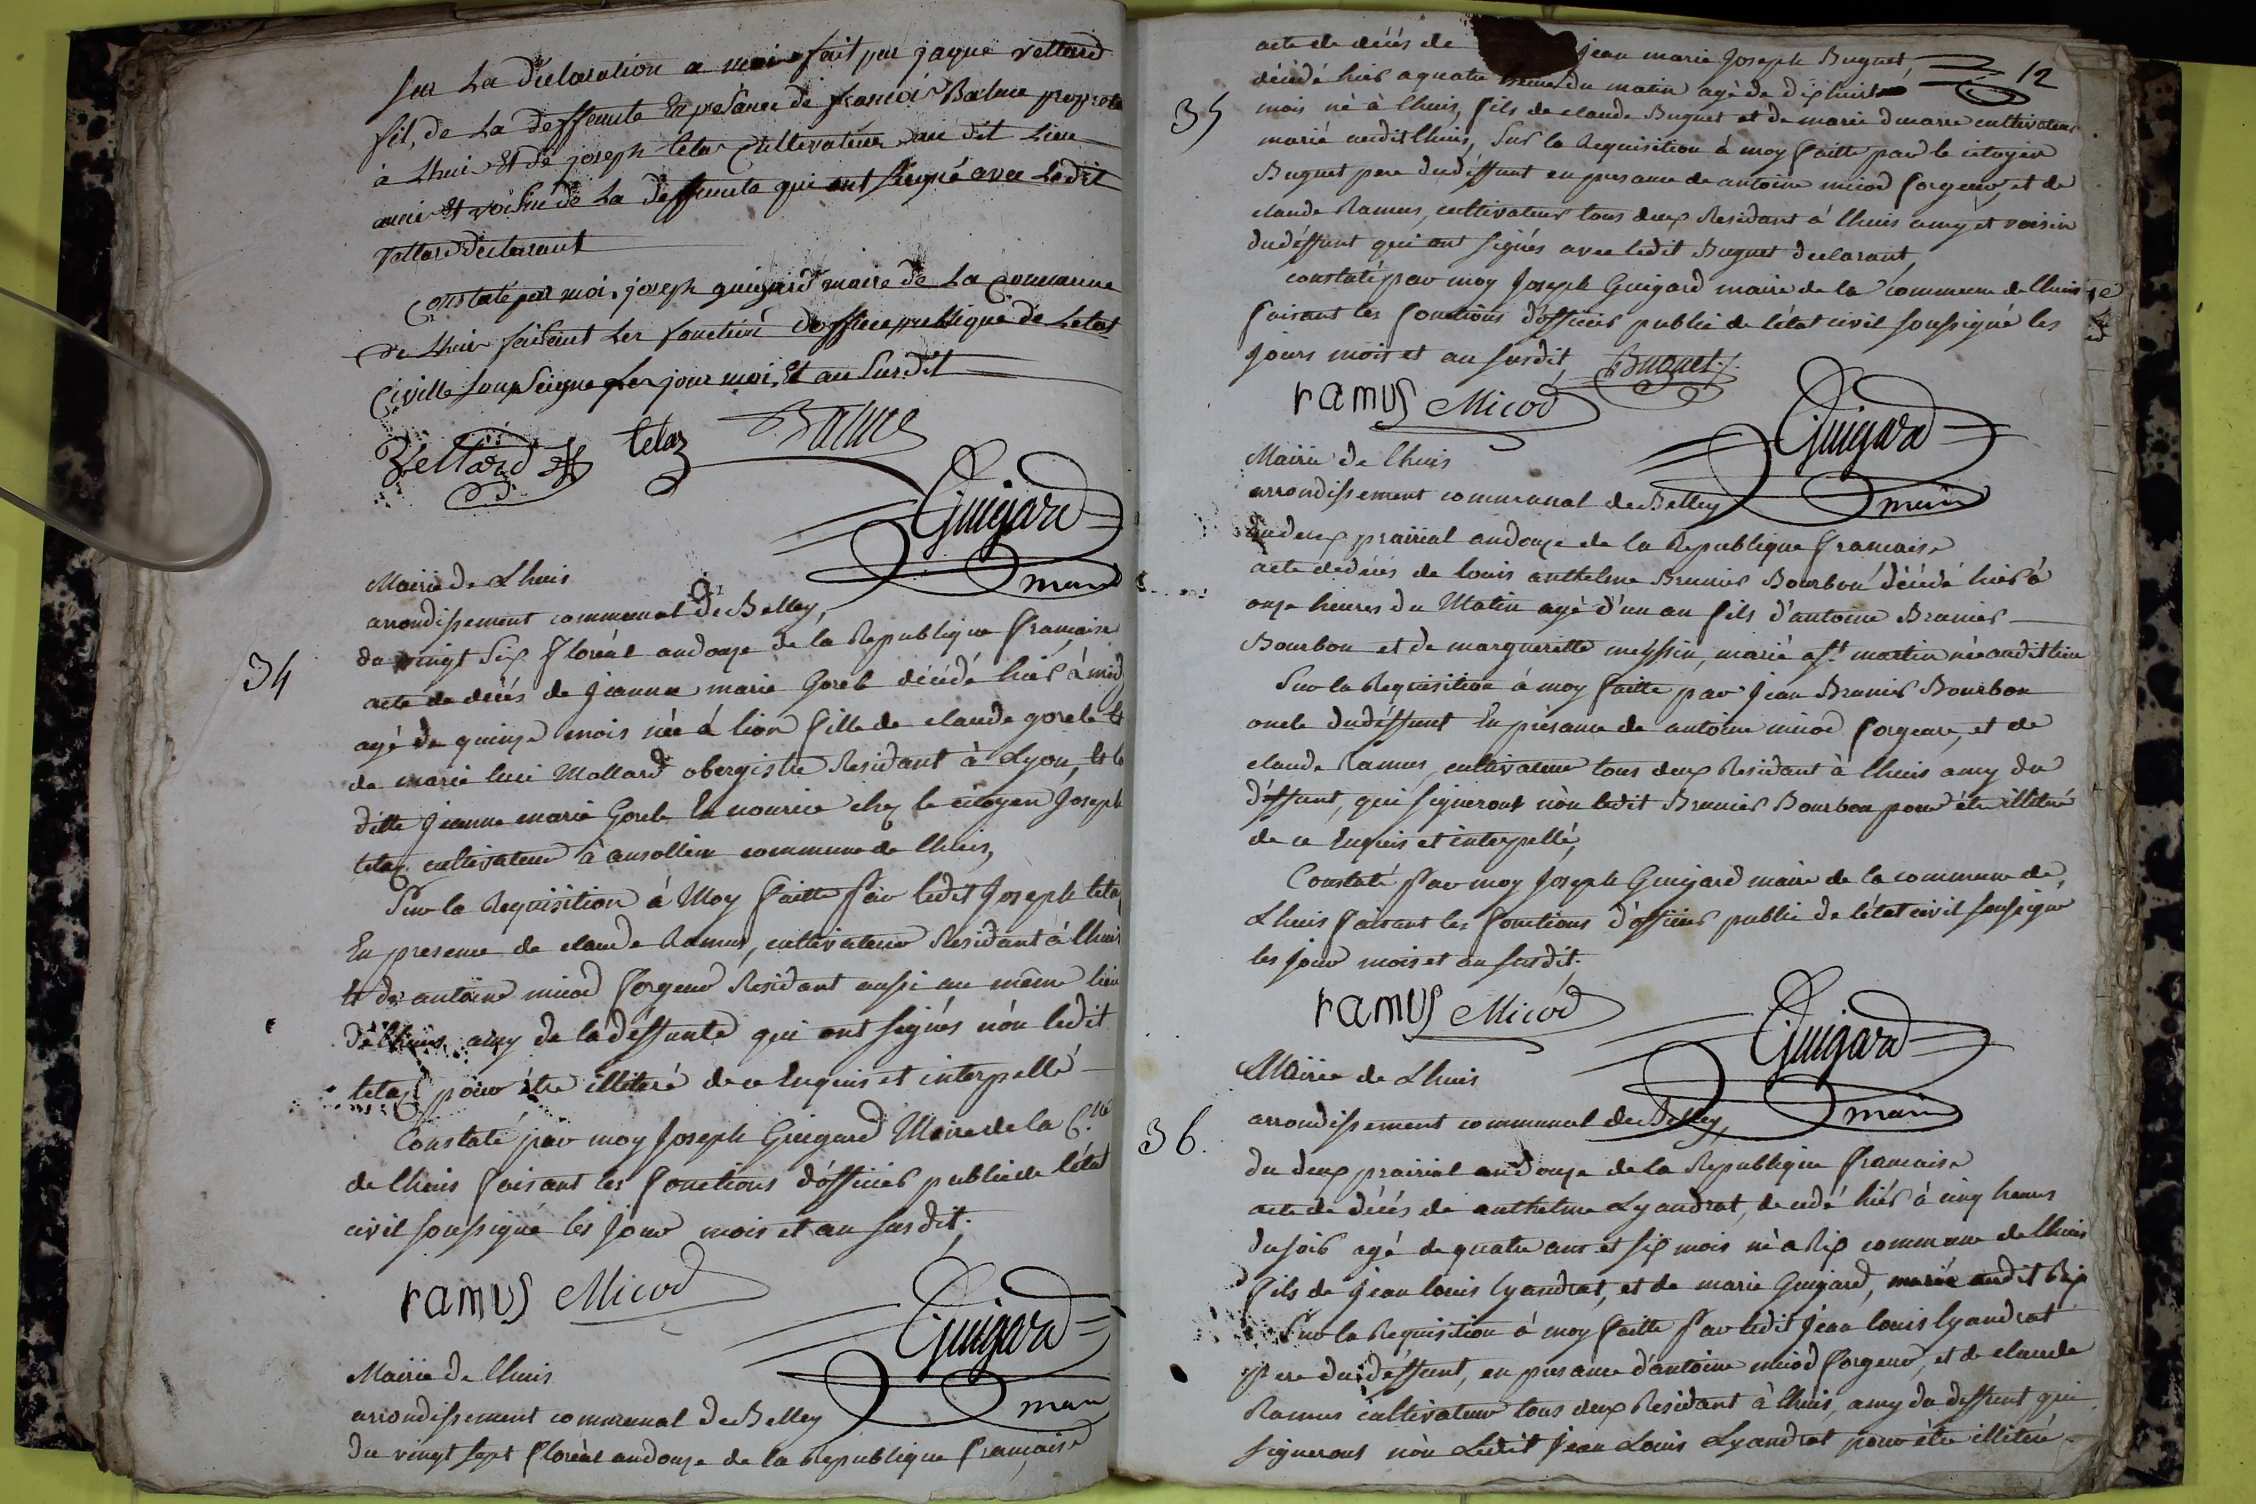 Sur La Déclaration a moi fait par jaque vettard
fil, de La deffeunte En présance de francoi Balme proprota
à Lhui Et de joseph tela Cultivateur au dit Lieu
ami Et voisin de La deffeunte qui ont signé avec Ledit
Vettard declarant
Constaté par moi, joseph guigard maire de La Commune
de Lhui faisant Les fonction dofficer publique de Letat
Civille soup Seigne Les jour moi, Et an Susdit
Vettard telaz Balme
Guigard
maire
Mairie de Lhuis
arrondissement communal de Belley,
34
du vingt Six floréal an douze de la Republique francaise
acte de décés de jeanne marie Goreb décédé hier à midy
agé de quinze mois née à lion fille de claude goreb et
de marie luci Mallard obergiste Residant à Lyon, et la
ditte jeanne marie Goreb En nourice chez le citoyen Joseph
telaz cultivateur à ansollin commune de lhuis,
Sur la Requisition à Moy faitte par ledit Joseph telaz
En presence de claude Ramus, cultivateur Residant à lhuis
et de antoine micod forgeur Residant aussi au même lieu
de lhuis amy de la déffunte qui ont signés nòn ledit
telaz pour étre illiteré de ce Enquis et interpellé
Constaté par moy Joseph Guigard Maire de la C.ne
de lhuis faisant les fonctions d'officier public de l'état
civil soussigné les jour mois et an susdit;
ramus Micod
Guigard
maire
Mairie de lhuis
arrondissement communal de Belley
du vingt sept floréal an douze de la Republique francaise
12
acte de décés de jean marie Joseph Buguet
décédé hier a quatre heures du matin agé de dixhuit
35
mois né à lhuis, fils de claude Buguet et de marie dmarre cultivateur
marié audit lhuis, Sur la Requisition à moy faitte par le citoyen
Buguet pere dudéffunt en presance de antoine micod forgeur, et de
claude Ramus, cultivateur tous deux Residant à lhuis amy et voisin
dudéffunt qui ont signés avec ledit Buguet declarant,
constaté par moy Joseph Guigard maire de la commune de lhuis
faisant les fonctions d'officier public de l'état civil soussigné les
jours mois et an susdit, Buguet
ramus Micod
Guigard
maire
Mairie de lhuis
arrondissement communal de Belley
du deux prairial an douze de la Republique francaise
acte de décés de louis anthelme Brunier Bourbon décédé hier à
onze heures du Matin agé d'un an fils d'antoine Brunier
Bourbon et de margueritte meyssin, marié a St martin né audit lieu
Sur la Requisition à moy faitte par jean Brunier Bourbon
oncle dudéffunt En présance de antoine micod forgeur, et de
claude Ramus, cultivateur tous deux Residant à lhuis amy du
déffunt, qui signeront nòn ledit Brunier Bourbon pour étre illiteré
de ce Enquis et interpellé,
Constaté par moy Joseph Guigard maire de la commune de,
Lhuis faisant les fonctions d'officier public de l'état civil soussigné
les jour mois et an susdit;
ramus Micod
Guigard
maire
Mairie de Lhuis
36.
arrondissement communal de Belley,
du deux prairial an douze de la Republique francaise
acte de décés de anthelme Lyandrat, decedé hiér à cinq heures
du soir agé de quatre ans et six mois né a Rix commune de lhuis
fils de jean louis lyandrat, et de marie Guigard, mariés audit Rix
Sur la Requisition à moy faitte par ledit jean louis lyandrat
pere du déffunt, en presance d'antoine micod forgeur, et de claude
Ramus cultivateur tous deux Residant à lhuis, amy du deffunt qui
signeront nòn Ledit jean Louis Lyandrat pour étre illiteré